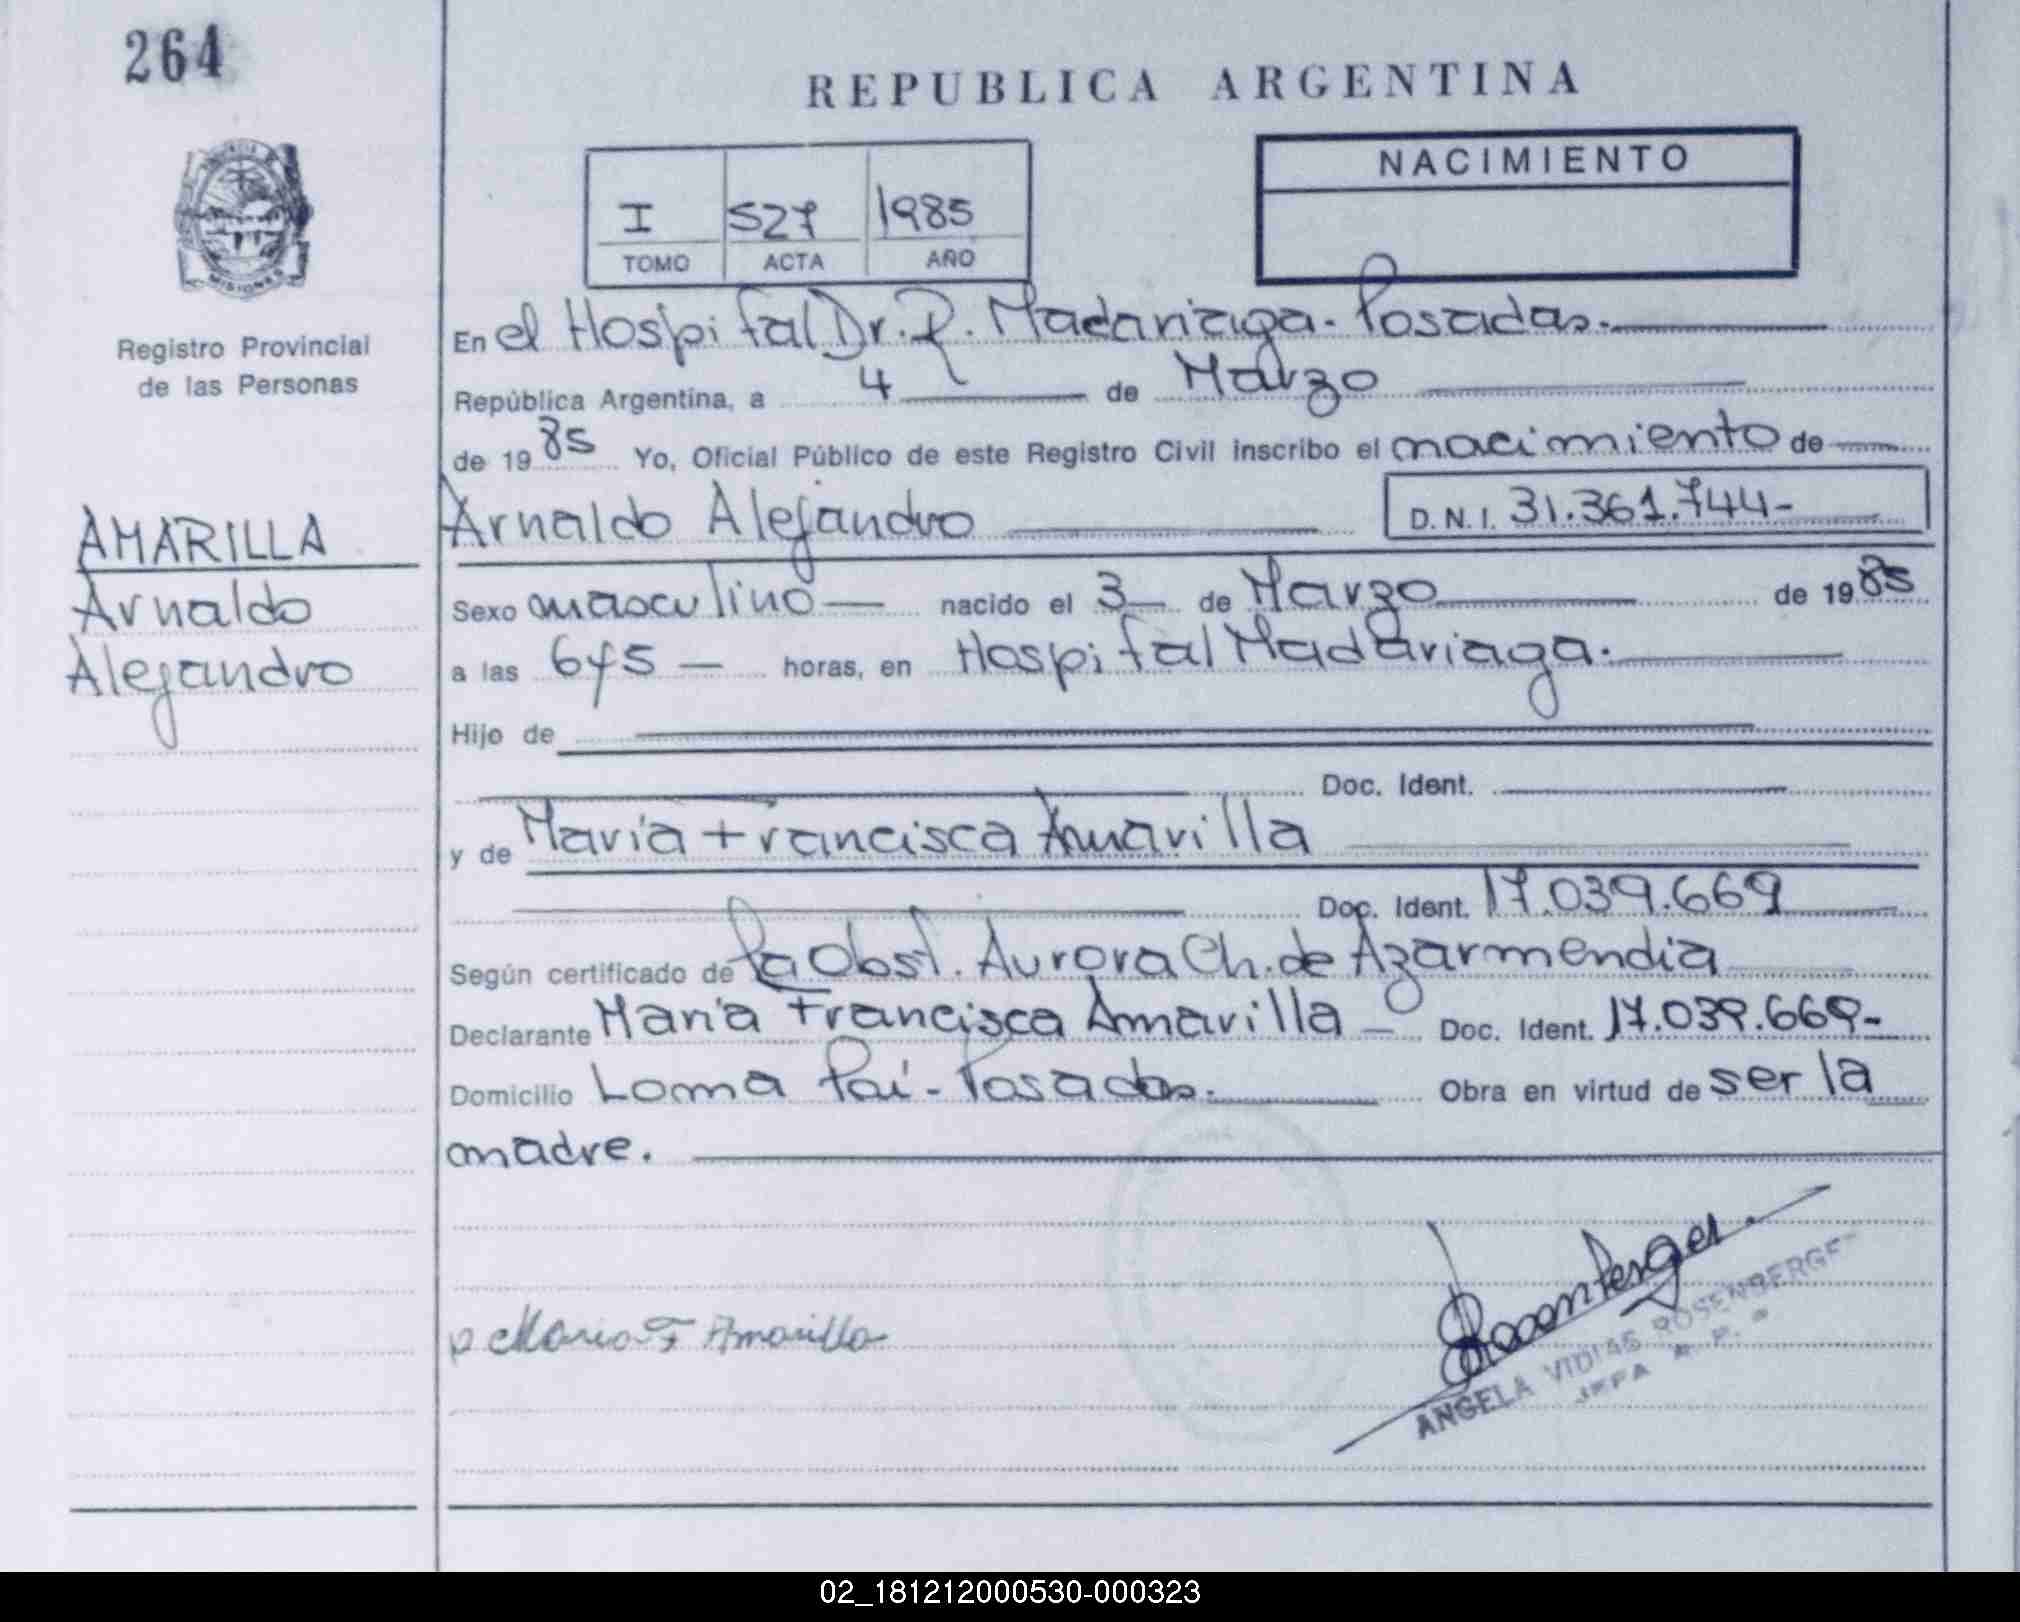 264
REPUBLICA ARGENTINA
NACIMIENTO
I 527 1985
TOMO ACTA AÑO
MISIONES
Registro Provincial
de las Personas
AMARILLA
Arnaldo
Alejandro
En el Hospital Dr. R. Madariaga - Posadas.
República Argentina, a 4 de Marzo
de 1985 Yo, Oficial Público de este Registro Civil inscribo el nacimiento de
Arnaldo Alejandro D.N.I. 31.361.744-
Sexo masculino nacido el 3 de Marzo de 1985
a las 6y5 horas, en Hospital Madariaga.
Hijo de
Doc. Ident.
y de María Francisca Amarilla
Doc. Ident. 17.039.669
Según certificado de la Obst. Aurora Ch. de Azarmendia
Declarante María Francisca Amarilla Doc. Ident. 17.039.669-
Domicilio Loma Poí - Posadas. Obra en virtud de ser la
madre.
Maria F Amarilla
ANGELA VIDIAS ROSENBERGE
JEFA
02_181212000530-000323